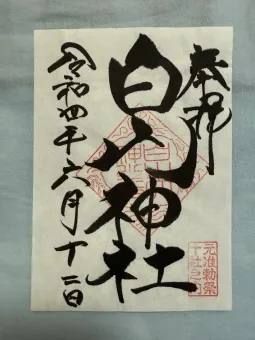 奉拝
白山神社
令和四年六月十二日
元准勅祭
十社之内